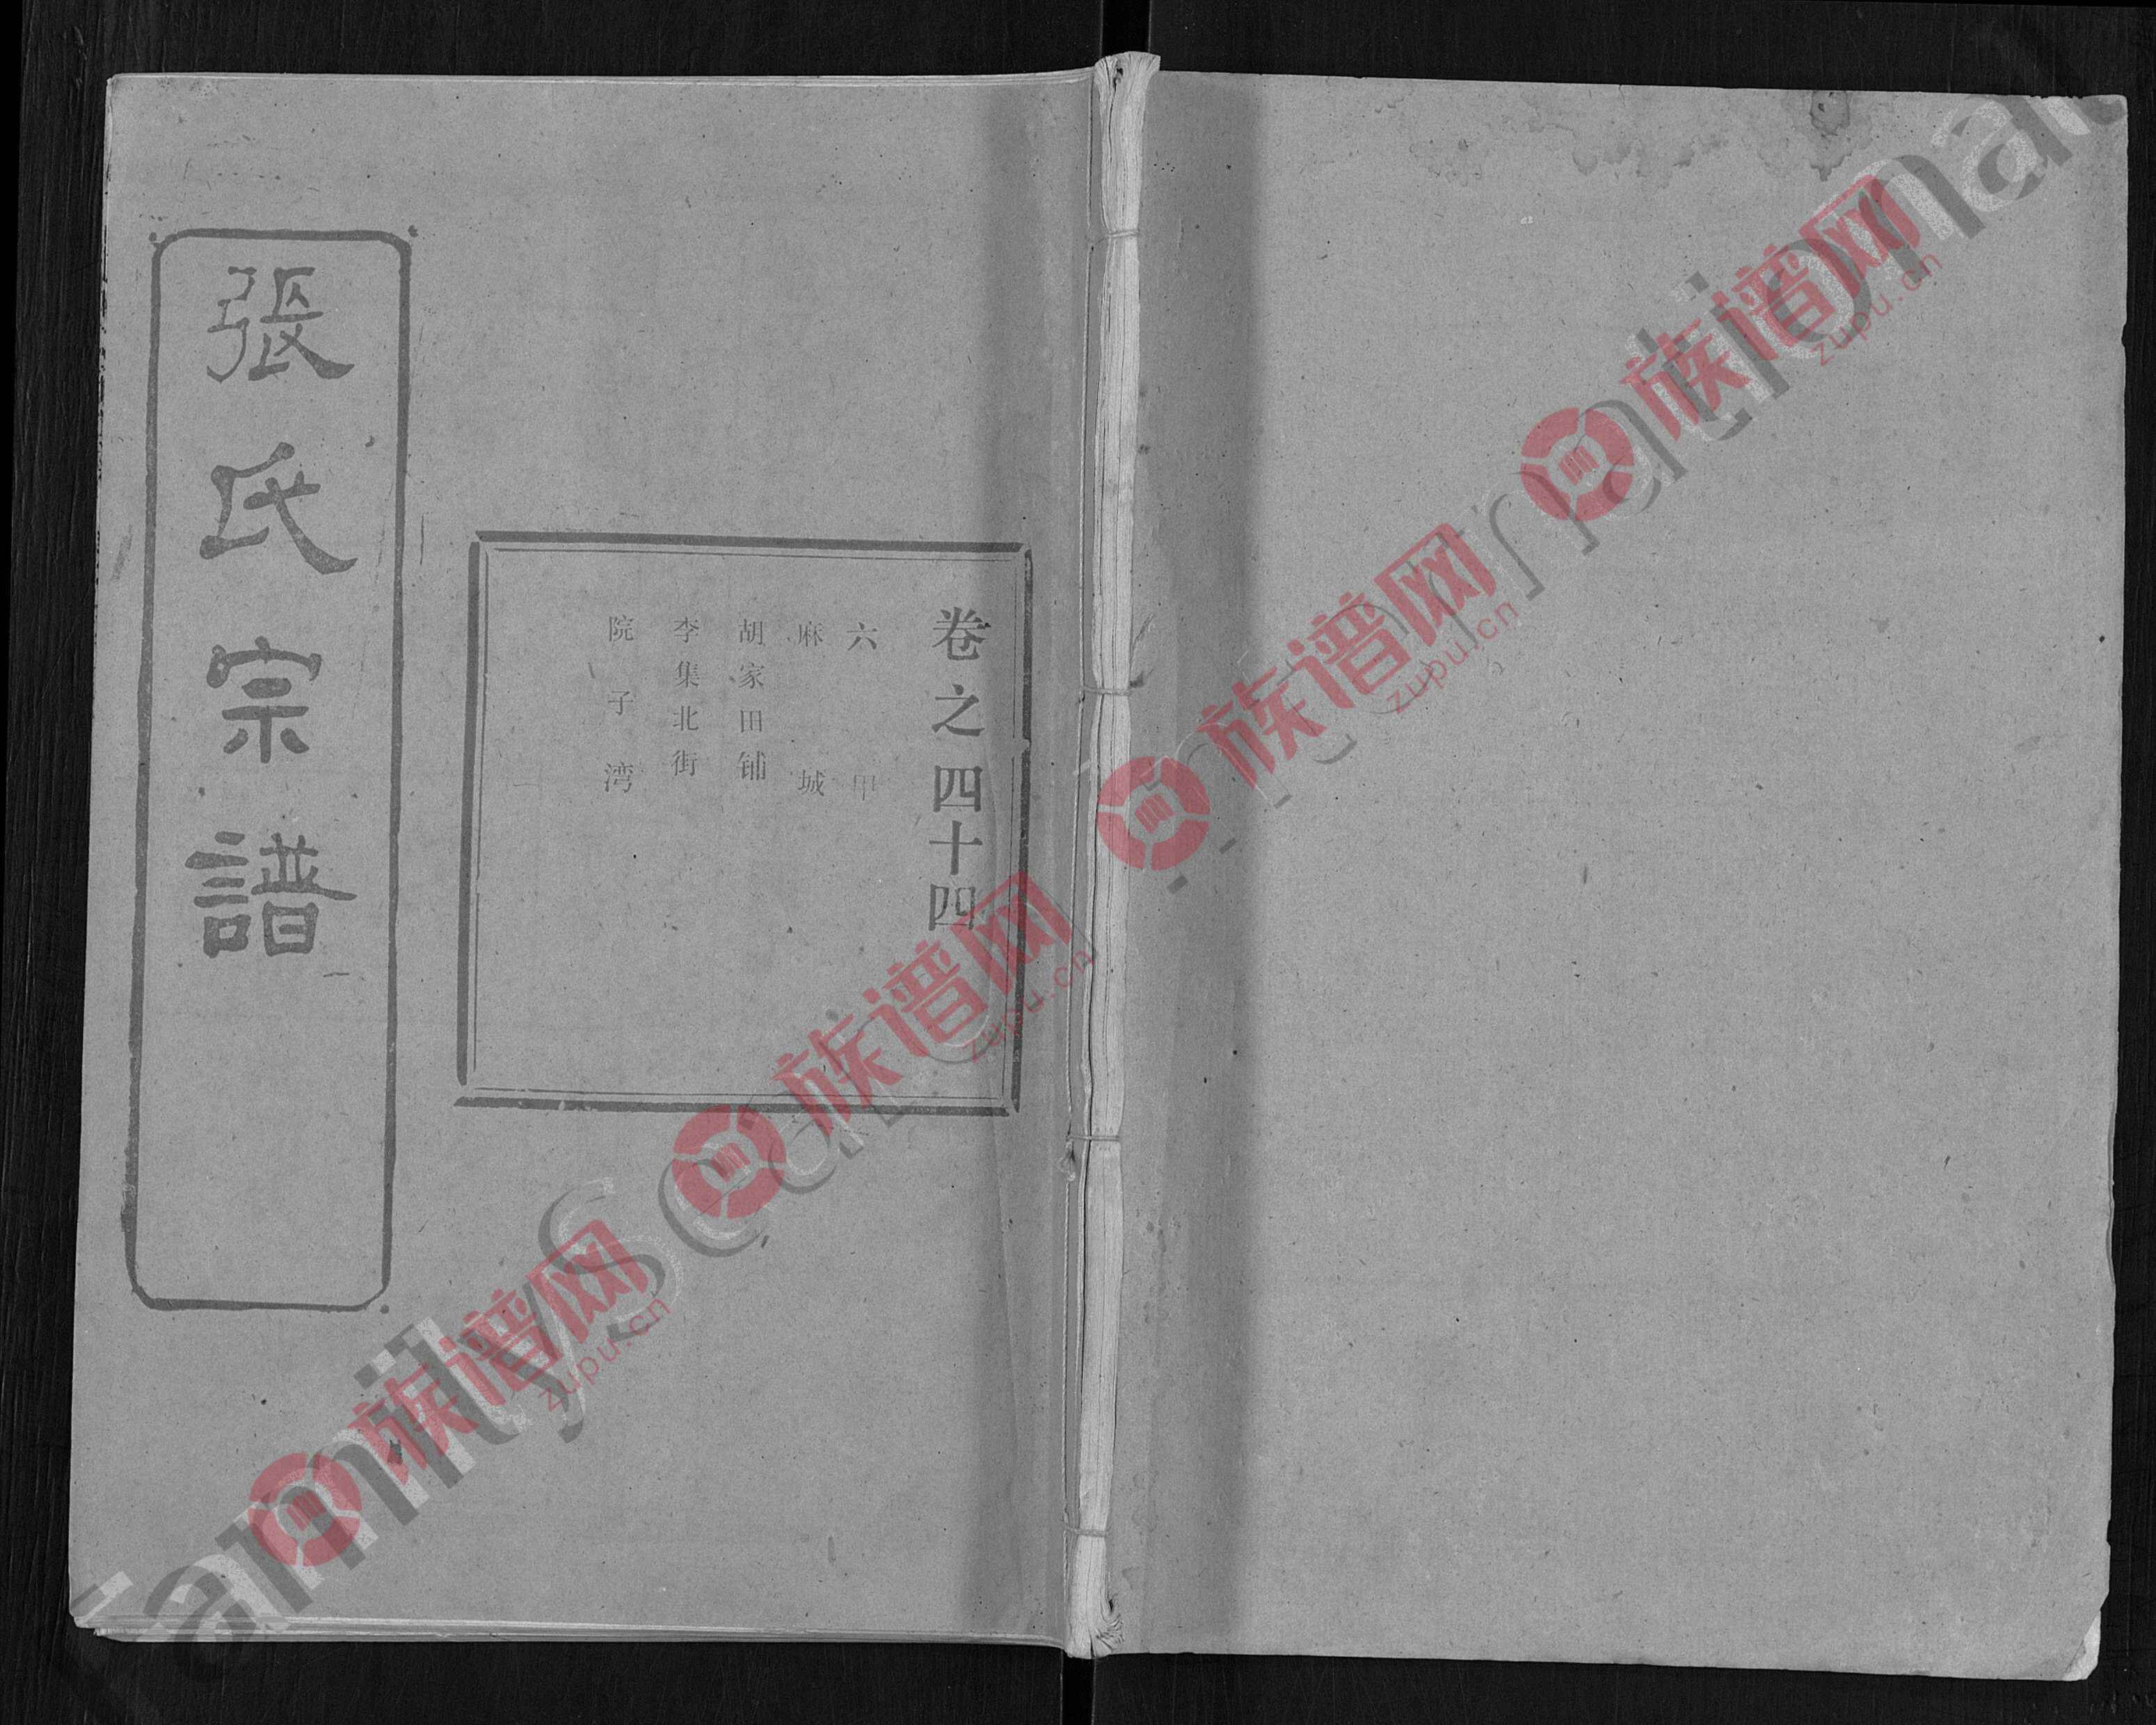 卷之四十四
六甲
麻城
胡家田铺
李集北街
院子湾
張氏宗譜
族谱网
zupu.cn
族谱网
zupu.cn
族谱网
zupu.cn
族谱网
zupu.cn